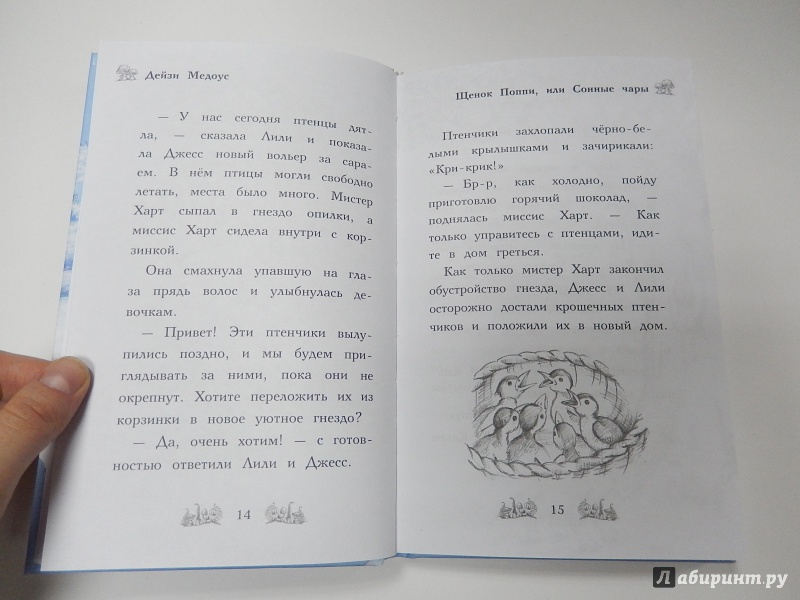 Дейзи Медоус
— У нас сегодня птенцы дят-
ла, — сказала Лили и показа-
ла Джесс новый вольер за сара-
ем. В нём птицы могли свободно
летать, места было много. Мистер
Харт сыпал в гнездо опилки, а
миссис Харт сидела внутри с кор-
зинкой.
Она смахнула упавшую на гла-
за прядь волос и улыбнулась де-
вочкам.
— Привет! Эти птенчики вылу-
пились поздно, и мы будем при-
глядывать за ними, пока они не
окрепнут. Хотите переложить их из
корзинки в новое уютное гнездо?
— Да, очень хотим! — с готов-
ностью ответили Лили и Джесс.
14
Щенок Поппи, или Сонные чары
Птенчики захлопали чёрно-бе-
лыми крылышками и зачирикали:
«Кри-крик!»
— Бр-р, как холодно, пойду
приготовлю горячий шоколад, —
поднялась миссис Харт. — Как
только управитесь с птенцами, иди-
те в дом греться.
Как только мистер Харт закончил
обустройство гнезда, Джесс и Лили
осторожно достали крошечных птен-
чиков и положили их в новый дом.
15
Лабиринт.ру